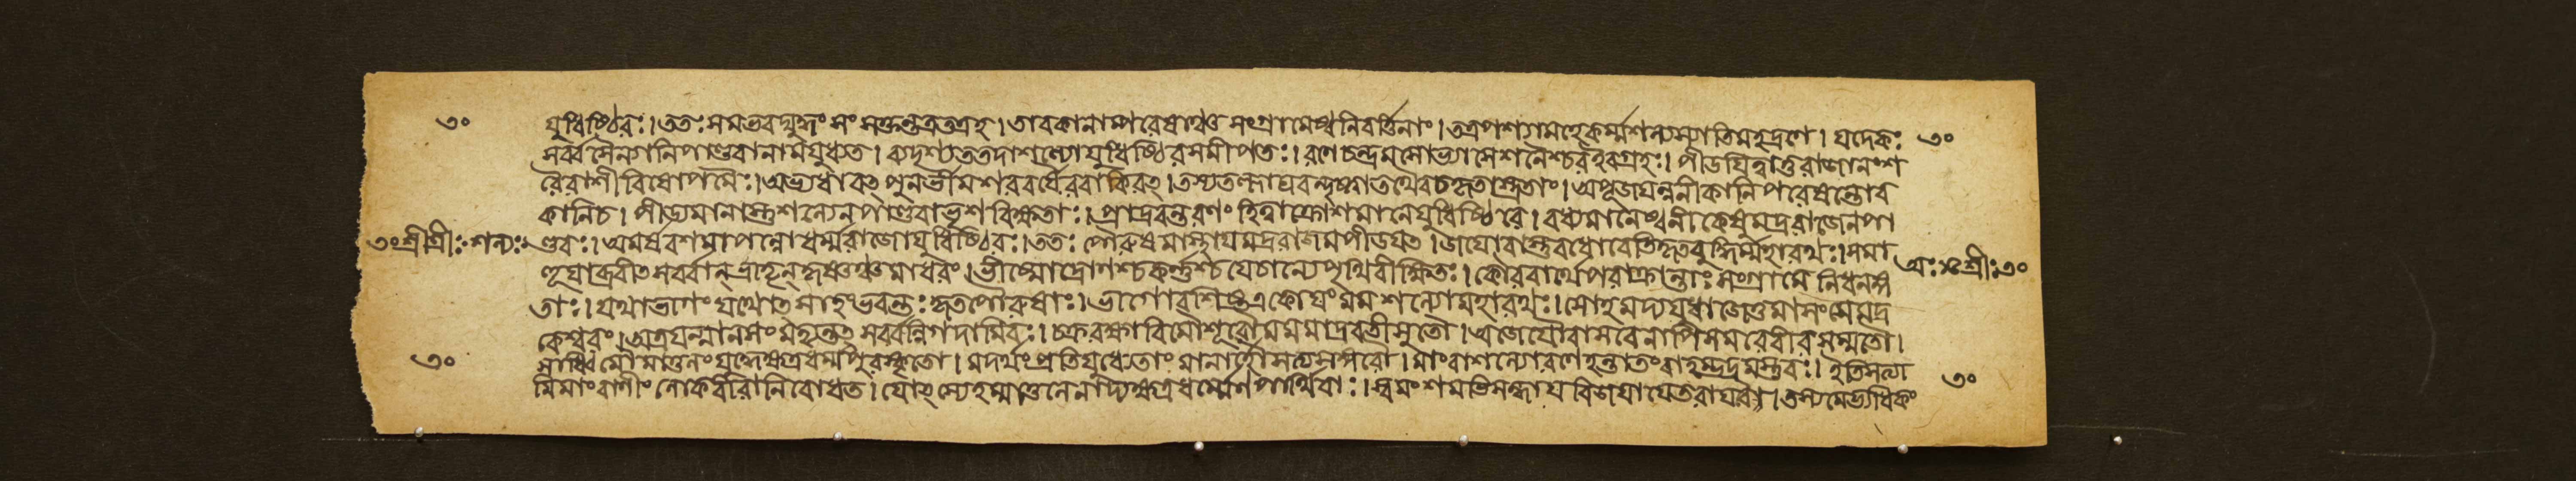 ৩০ যুধিষ্ঠিরঃ।ততঃসমভবদ্যুদ্ধং সংসক্তন্তত্রতত্রহ।তাবকানাম্পরেষাঞ্চসংগ্রামেষ্বনিবর্ত্তিনাং।তত্রপশ্যামহেকর্ম্মশল্যস্যাতিমহদ্রণে।যদেকঃ ৩০
সর্ব্বসৈন্যানিপাণ্ডবানামযুধ্যত।ব্যদৃশ্যততদাশল্যোযুধিষ্ঠিরসমীপতঃ।রণেচন্দ্রমসোভ্যাসেশনৈশ্চরইবগ্রহঃ।পীডযিত্বাতুরাজানংশ
রৈরাশীবিষোপমৈঃ।অভ্যধাবৎপুনর্ভীমশরবর্ষৈরবাকিরৎ।তস্যতল্লাঘবন্দৃষ্ট্বাতথৈবচকৃতাস্ত্রতাং।অপূজযন্ননীকানিপরেষান্তাব
কানিচ।পীড্যমানাস্তুশল্যেনপাণ্ডবাভৃশবিক্ষতাঃ।প্রাদ্রবন্তরণং হিত্বাক্রোশমানেযুধিষ্ঠিরে।বধ্যমানেষ্বনীকেষুমদ্ররাজেনপা
৩৹শ্রীশ্রীঃশল্যঃ ণ্ডবঃ।অমর্ষবশমাপন্নোধর্ম্মরাজোযুধিষ্ঠিরঃ।ততঃ পৌরুষমাস্থাযমদ্ররাজমপীডযত।জযোবাস্তুবধোবেতিকৃতবুদ্ধির্ম্মহারথঃ।সমা
হূযাব্রবীৎসর্ব্বান্ভ্রাতৄন্কৃষ্ণঞ্চমাধবং।ভীষ্মোদ্রোণশ্চকর্ণ্ণশ্চযেচান্যেপৃথিবীক্ষিতঃ।কৌরবার্থেপরাক্রান্তাঃসংগ্রামে নিধনঙ্গ
তাঃ।যথাভাগং যথোৎসাহংভবন্তঃকৃতপৌরুষাঃ।ভাগোবশিষ্টএকোযংমমশল্যোমহারথঃ।সোহমদ্যযুধাজেতুমাসংসেমদ্র
কেশ্বরং।অত্রযন্মানসংমহ্যন্তৎসর্ব্বন্নিগদামিবঃ।চক্ররক্ষাবিমৌশূরৌমমমাদ্রবতীসুতৌ।অজেযৌবাসবেনাপিসমরেবীরসম্মতৌ।
৩০ সাধ্বিমৌমাতুলংযুদ্ধেক্ষত্রধর্ম্মপুরস্কৃতৌ।মদর্থংপ্রতিযুধ্যেতাং মানার্হৌসত্যসঙ্গরৌ।মাংবাশল্যোরণেহন্তাতংবাহম্ভদ্রমস্তুবঃ।ইতিসত্যা
মিমাংবাণীং লোকবীরানিবোধত।যোৎস্যেহম্মাতুলেনাদ্যক্ষত্রধর্ম্মেণপার্থিবাঃ।স্বমংশমভিসন্ধাযবিজযাযেতরাযবা।তস্যমেভ্যধিকং ৩০